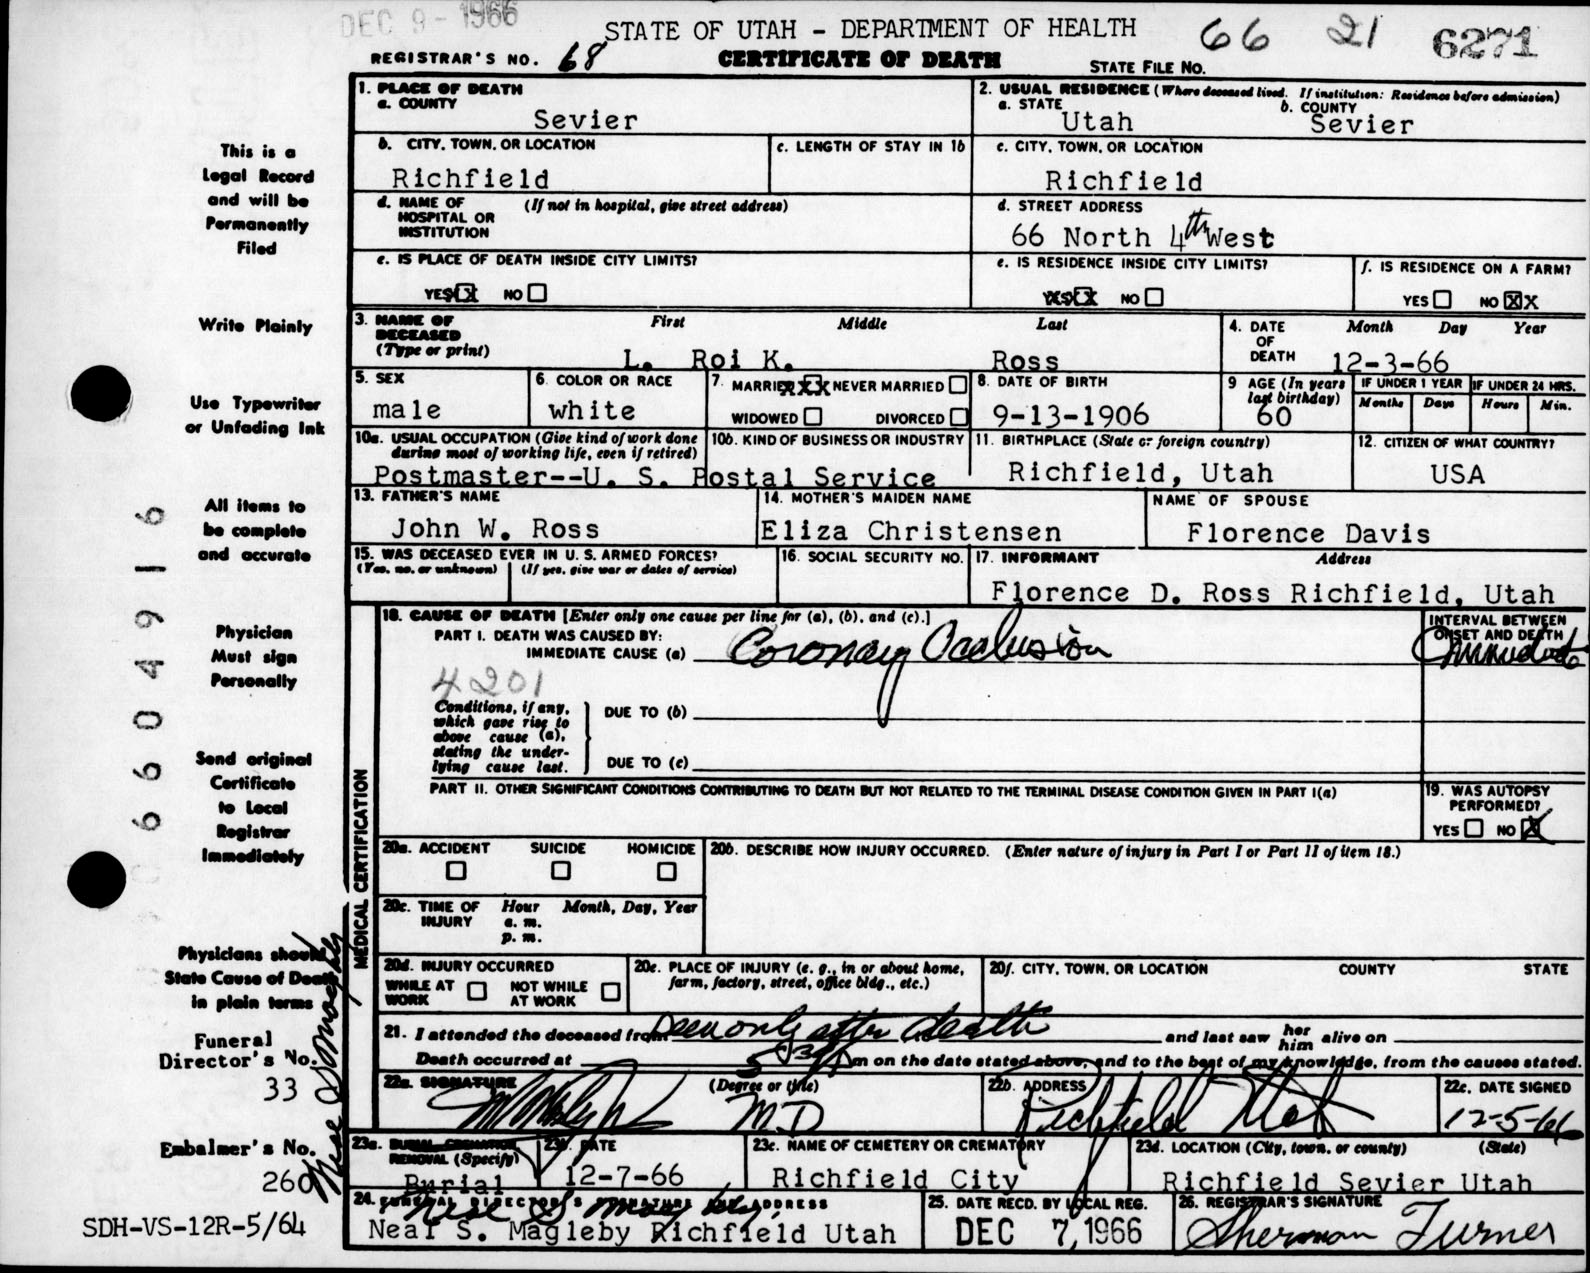 DEC 9 - 1966
STATE OF UTAH - DEPARTMENT OF HEALTH
66 21 6271
REGISTRAR'S NO. 68
CERTIFICATE OF DEATH
STATE FILE NO.
This is a
Legal Record
and will be
Permanently
Filed
Write Plainly
Use Typewriter
or Unfading Ink
All items to
be complete
and accurate
Physician
Must sign
Personally
Send original
Certificate
to Local
Registrar
Immediately
Physicians should
State Cause of Death
in plain terms
Funeral
Director's No.
33
Embalmer's No.
260
SDH-VS-12R-5/64
6604916
1. PLACE OF DEATH
a. COUNTY
Sevier
2. USUAL RESIDENCE (Where deceased lived. If institution: Residence before admission)
a. STATE
Utah
b. COUNTY
Sevier
b. CITY, TOWN, OR LOCATION
Richfield
c. LENGTH OF STAY IN 1b
c. CITY, TOWN, OR LOCATION
Richfield
d. NAME OF HOSPITAL OR INSTITUTION
(If not in hospital, give street address)
d. STREET ADDRESS
66 North 4th West
e. IS PLACE OF DEATH INSIDE CITY LIMITS?
YES XX NO
e. IS RESIDENCE INSIDE CITY LIMITS?
YES XX NO
f. IS RESIDENCE ON A FARM?
YES NO XX
3. NAME OF DECEASED
(Type or print)
First Middle Last
L. Roi K. Ross
4. DATE OF DEATH
Month Day Year
12-3-66
5. SEX
male
6. COLOR OR RACE
white
7. MARRIED XXX NEVER MARRIED
WIDOWED DIVORCED
8. DATE OF BIRTH
9-13-1906
9 AGE (In years last birthday)
60
IF UNDER 1 YEAR
Months Days
IF UNDER 24 HRS.
Hours Min.
10a. USUAL OCCUPATION (Give kind of work done during most of working life, even if retired)
10b. KIND OF BUSINESS OR INDUSTRY
Postmaster--U. S. Postal Service
11. BIRTHPLACE (State or foreign country)
Richfield, Utah
12. CITIZEN OF WHAT COUNTRY?
USA
13. FATHER'S NAME
John W. Ross
14. MOTHER'S MAIDEN NAME
Eliza Christensen
NAME OF SPOUSE
Florence Davis
15. WAS DECEASED EVER IN U. S. ARMED FORCES?
(Yes, no, or unknown) (If yes, give war or dates of service)
16. SOCIAL SECURITY NO.
17. INFORMANT Address
Florence D. Ross Richfield, Utah
MEDICAL CERTIFICATION
18. CAUSE OF DEATH [Enter only one cause per line for (a), (b), and (c).]
PART I. DEATH WAS CAUSED BY:
IMMEDIATE CAUSE (a) Coronary Occlusion
INTERVAL BETWEEN ONSET AND DEATH
4201
Conditions, if any, which gave rise to above cause (a), stating the underlying cause last.
DUE TO (b)
DUE TO (c)
PART II. OTHER SIGNIFICANT CONDITIONS CONTRIBUTING TO DEATH BUT NOT RELATED TO THE TERMINAL DISEASE CONDITION GIVEN IN PART I(a)
19. WAS AUTOPSY PERFORMED?
YES NO X
20a. ACCIDENT SUICIDE HOMICIDE
20b. DESCRIBE HOW INJURY OCCURRED. (Enter nature of injury in Part I or Part II of item 18.)
20c. TIME OF INJURY
Hour Month, Day, Year
a. m.
p. m.
20d. INJURY OCCURRED
WHILE AT WORK NOT WHILE AT WORK
20e. PLACE OF INJURY (e. g., in or about home, farm, factory, street, office bldg., etc.)
20f. CITY, TOWN, OR LOCATION COUNTY STATE
21. I attended the deceased from Seen only after death and last saw her him alive on
Death occurred at m on the date stated above, and to the best of my knowledge, from the causes stated.
22a. SIGNATURE
(Degree or title)
M.D
22b. ADDRESS
Richfield Utah
22c. DATE SIGNED
12-5-66
23a. BURIAL, CREMATION, REMOVAL (Specify)
Burial
23b. DATE
12-7-66
23c. NAME OF CEMETERY OR CREMATORY
Richfield City
23d. LOCATION (City, town, or county) (State)
Richfield Sevier Utah
24. FUNERAL DIRECTOR'S SIGNATURE AND ADDRESS
Neal S. Magleby
Neal S. Magleby Richfield Utah
25. DATE RECD. BY LOCAL REG.
DEC 7, 1966
26. REGISTRAR'S SIGNATURE
Sherman Turner